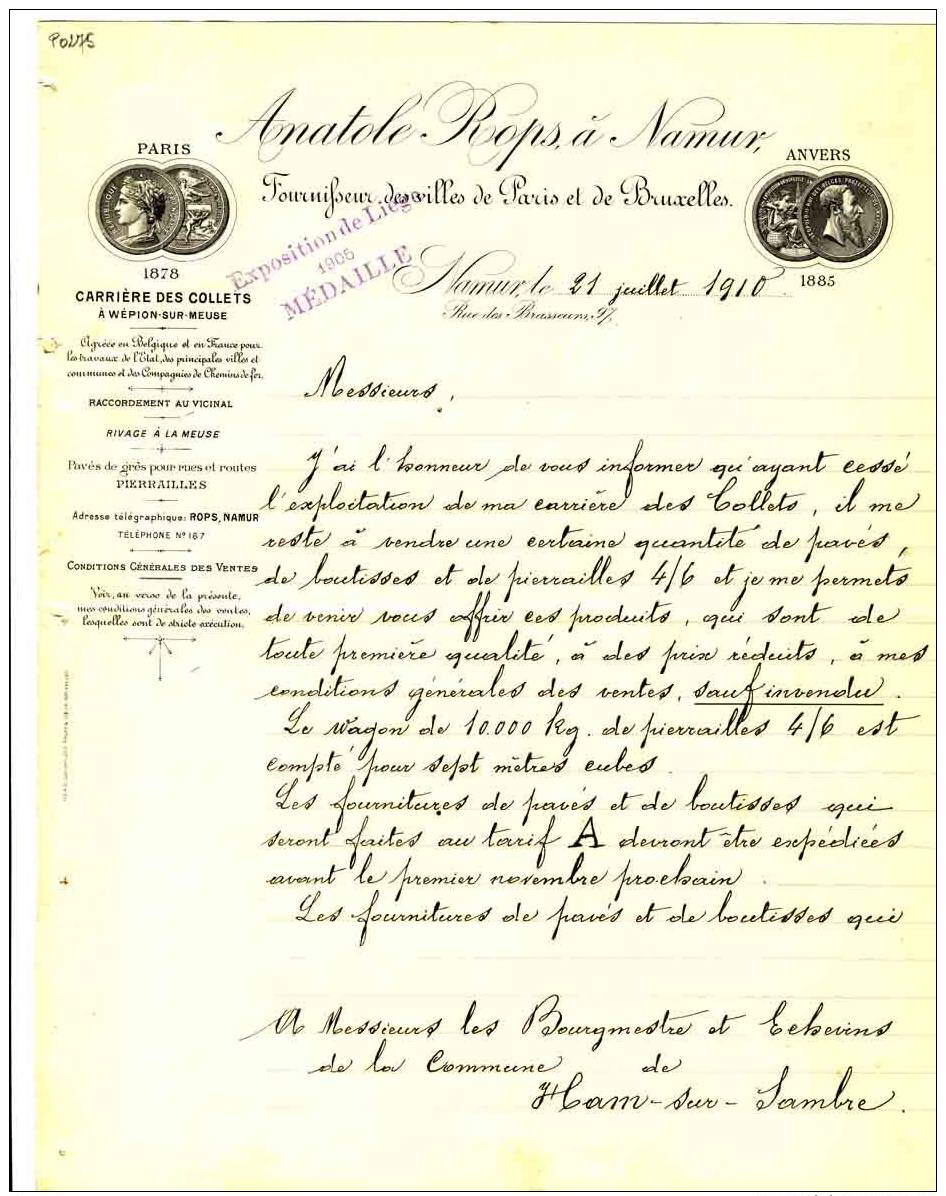 P0275
Anatole Rops, à Namur,
Fournisseur des villes de Paris et de Bruxelles.
PARIS
1878
ANVERS
1885
Exposition de Liége
1905
MÉDAILLE
Namur, le 21 juillet 1910
Rue des Brasseurs, 97.
CARRIÈRE DES COLLETS
À WÉPION-SUR-MEUSE
Agréée en Belgique et en France pour
les travaux de l'Etat, des principales villes et
communes et des Compagnies de Chemins de fer.
RACCORDEMENT AU VICINAL
RIVAGE À LA MEUSE
Pavés de grès pour rues et routes
PIERRAILLES
Adresse télégraphique: ROPS, NAMUR
TÉLÉPHONE Nº 167
CONDITIONS GÉNÉRALES DES VENTES
Voir, au verso de la présente,
mes conditions générales des ventes,
lesquelles sont de stricte exécution.
Messieurs,
J'ai l'honneur de vous informer qu'ayant cessé
l'exploitation de ma carrière des Collets, il me
reste à vendre une certaine quantité de pavés,
de boutisses et de pierrailles 4/6 et je me permets
de venir vous offrir ces produits, qui sont de
toute première qualité, à des prix réduits, à mes
conditions générales des ventes, sauf invendu.
Le wagon de 10.000 Kg. de pierrailles 4/6 est
compté pour sept mètres cubes.
Les fournitures de pavés et de boutisses qui
seront faites au tarif A devront être expédiées
avant le premier novembre prochain.
Les fournitures de pavés et de boutisses qui
A Messieurs les Bourgmestre et Echevins
de la Commune de
Ham-sur-Sambre.